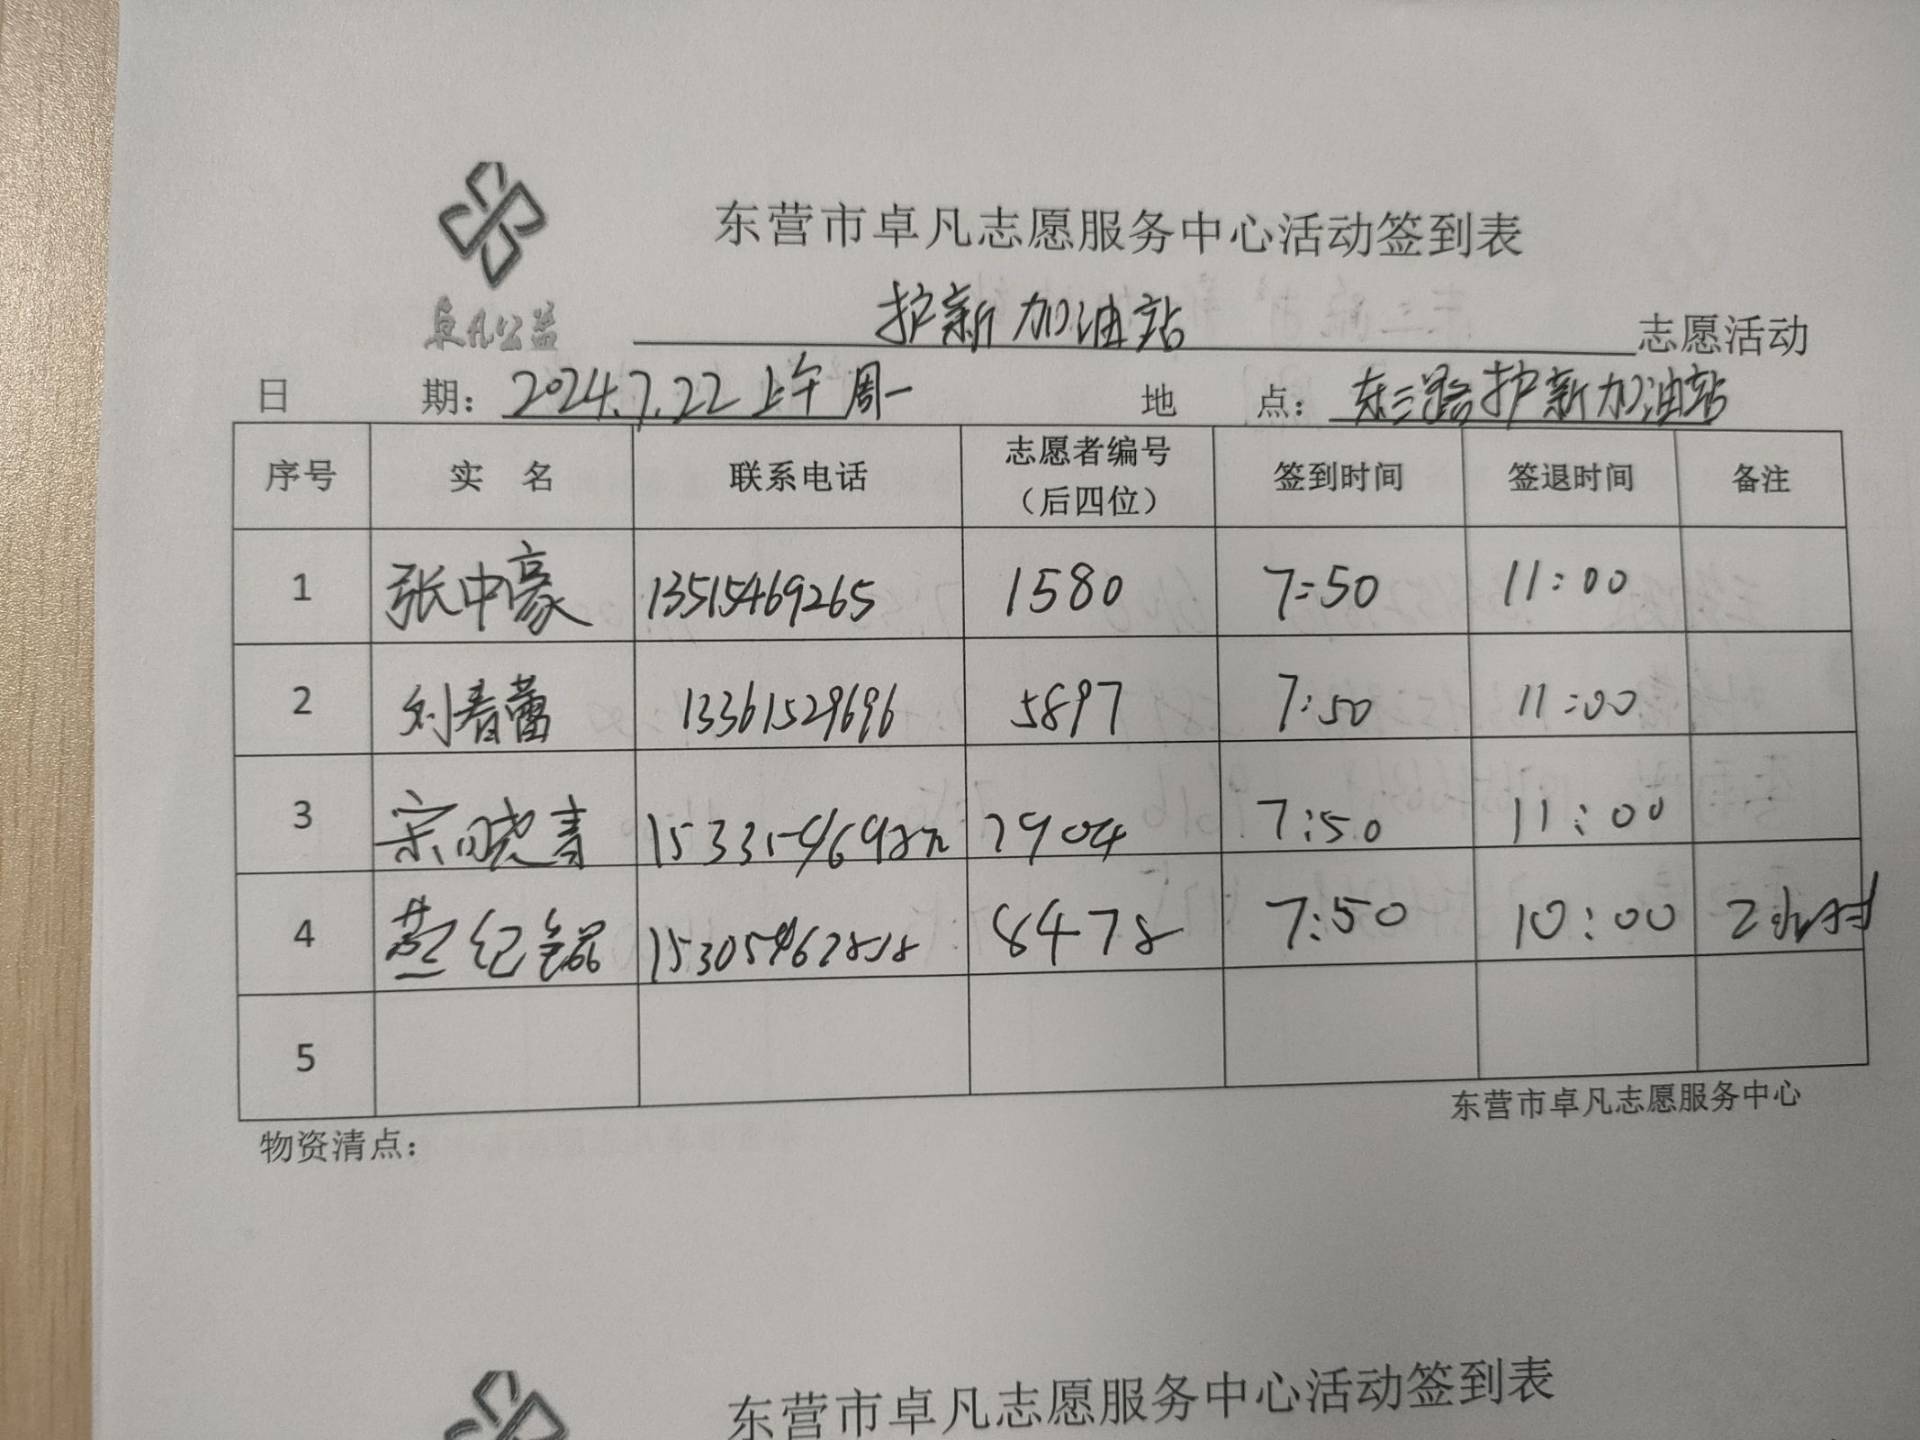 东营市卓凡志愿服务中心活动签到表
卓凡公益
护新加油站 志愿活动
日 期：2024.7.22 上午 周一 地 点：东三路护新加油站
序号 实 名 联系电话 志愿者编号（后四位） 签到时间 签退时间 备注
1 张中豪 13515469265 1580 7:50 11:00
2 刘春蕾 13361529696 5897 7:50 11:00
3 宗晓青 7904 7:50 11:00
4 纪 8478 7:50 10:00 2小时
5
东营市卓凡志愿服务中心
物资清点：
东营市卓凡志愿服务中心活动签到表